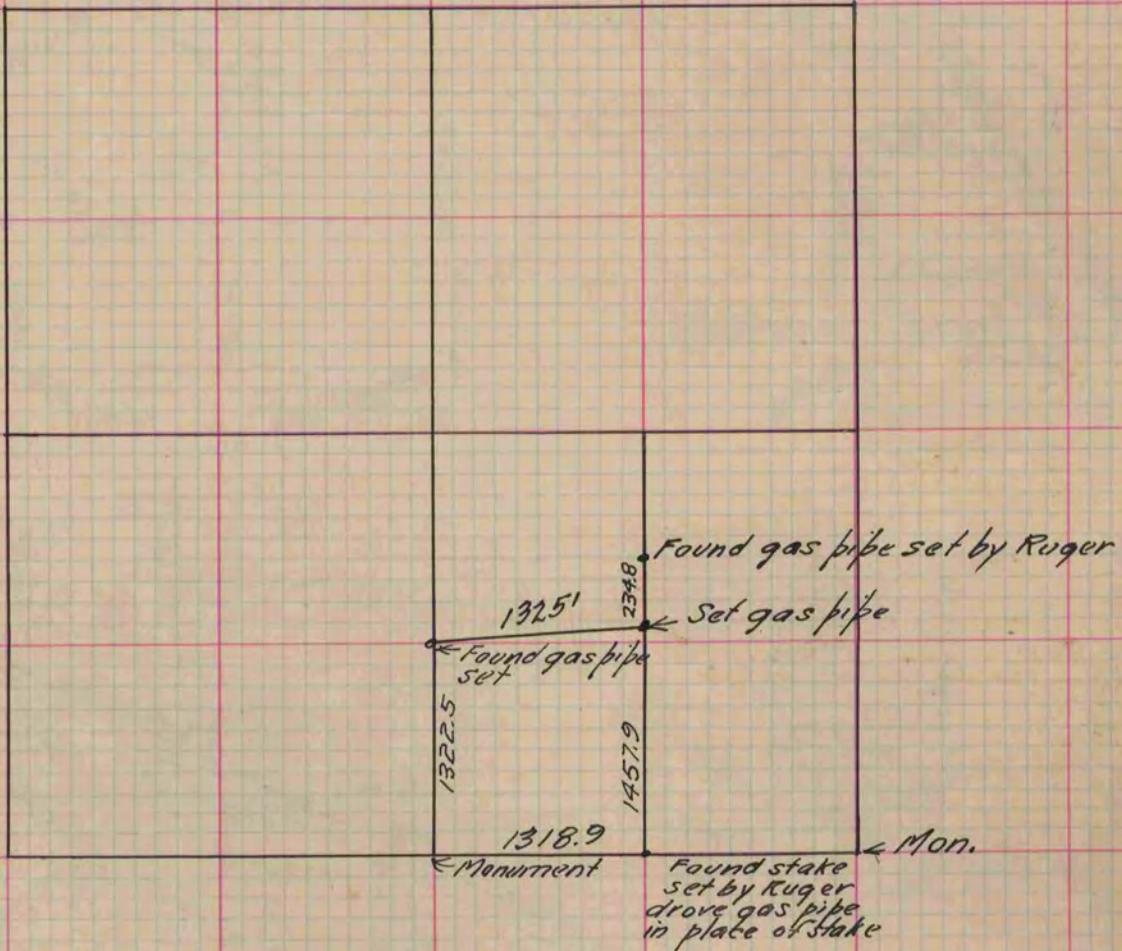 Found gas pipe set by Ruger
234.8
1325'
Set gas pipe
Found gas pipe
set
1322.5
1457.9
1318.9
Monument
Mon.
Found stake
set by Ruger
drove gas pipe
in place of stake